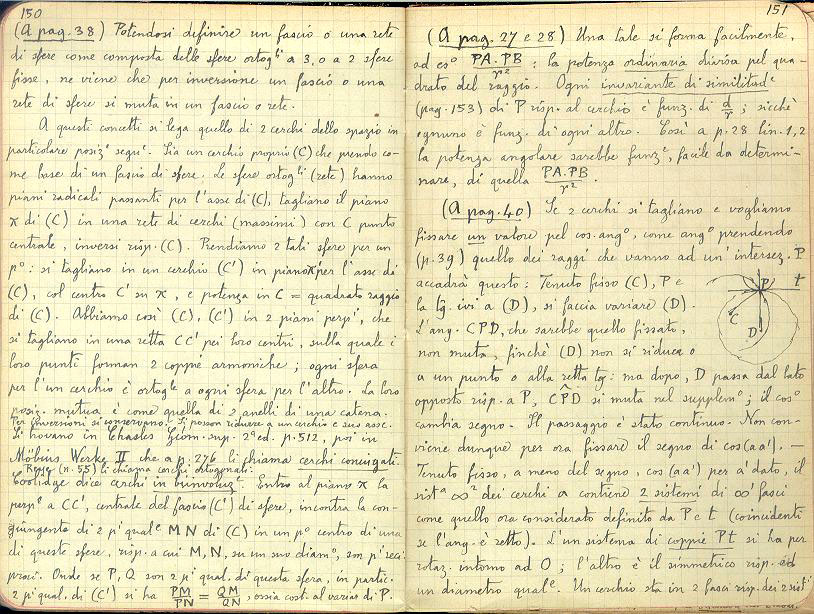 150
(A pag. 38) Potendosi definire un fascio o una rete
di sfere come composta delle sfere ortog.li a 3, o a 2 sfere
fisse, ne viene che per inversione un fascio o una
rete di sfere si muta in un fascio o rete.
A questi concetti si lega quello di 2 cerchi dello spazio in
particolare posiz.e segu.e. Sia un cerchio proprio (C) che prendo co-
me base di un fascio di sfere. Le sfere ortog.li (rete) hanno
piani radicali passanti per l'asse di (C), tagliano il piano
π di (C) in una rete di cerchi (massimi) con C punto
centrale, inversi risp. (C). Prendiamo 2 tali sfere per un
p.o: si tagliano in un cerchio (C') in piano π' per l'asse di
(C), col centro C' su π, e potenza in C = quadrato raggio
di (C). Abbiamo così (C), (C') in 2 piani perp.i, che
si tagliano in una retta CC' pei loro centri, sulla quale i
loro punti forman 2 coppie armoniche; ogni sfera
per l'un cerchio è ortog.le a ogni sfera per l'altro. La loro
posiz. mutua è come quella di 2 anelli di una catena.
Per inversioni si conservano. Si posson ridurre a un cerchio e suo asse.
Si trovano in Chasles Géom. sup. 2ª ed. p. 512, poi in
Möbius Werke II che a p. 276 li chiama cerchi coniugati.
Reye (n. 55) li chiama cerchi ortogonali.
Coolidge dice cerchi in biinvoluz.e. Entro al piano π la
perp.e a CC', centrale del fascio (C') di sfere, incontra la con-
giungente di 2 p.i qual.e MN di (C) in un p.o centro di una
di queste sfere, risp. a cui M, N, su un suo diam.o, son p.i reci-
proci. Onde se P, Q son 2 p.i qual. di questa sfera, in partic.
2 p.i qual. di (C') si ha PM/PN = QM/QN, ossia cost. al variar di P.
151
(A pag. 27 e 28) Una tale si forma facilmente,
ad es.o PA.PB/r²: la potenza ordinaria divisa pel qua-
drato del raggio. Ogni invariante di similitud.e
(pag. 153) di P risp. al cerchio è funz. di d/r; sicchè
ognuno è funz. di ogni altro. Così a p. 28 lin. 1, 2
la potenza angolare sarebbe funz.e, facile da determi-
nare, di quella PA.PB/r².
(A pag. 40) Se 2 cerchi si tagliano e vogliamo
fissare un valore pel cos. ang.o, come ang.o prendendo
(p. 39) quello dei raggi che vanno ad un' intersez. P
accadrà questo: Tenuto fisso (C), P e
la tg. ivi a (D), si faccia variare (D).
L'ang. CPD, che sarebbe quello fissato,
non muta, finchè (D) non si riduca o
a un punto o alla retta tg: ma dopo, D passa dal lato
opposto risp. a P, CPD si muta nel supplem.o; il cos.o
cambia segno. Il passaggio è stato continuo. Non con-
viene dunque per ora fissare il segno di cos(aa'). —
Tenuto fisso, a meno del segno, cos(aa') per a' dato, il
sist.a ∞² dei cerchi a contiene 2 sistemi di ∞¹ fasci
come quello ora considerato definito da P e t (coincidenti
se l'ang. è retto). L'un sistema di coppie Pt si ha per
rotaz. intorno ad O; l'altro è il simmetrico risp. ad
un diametro qual.e. Un cerchio sta in 2 fasci risp. dei 2 sist.i
P
t
C
D